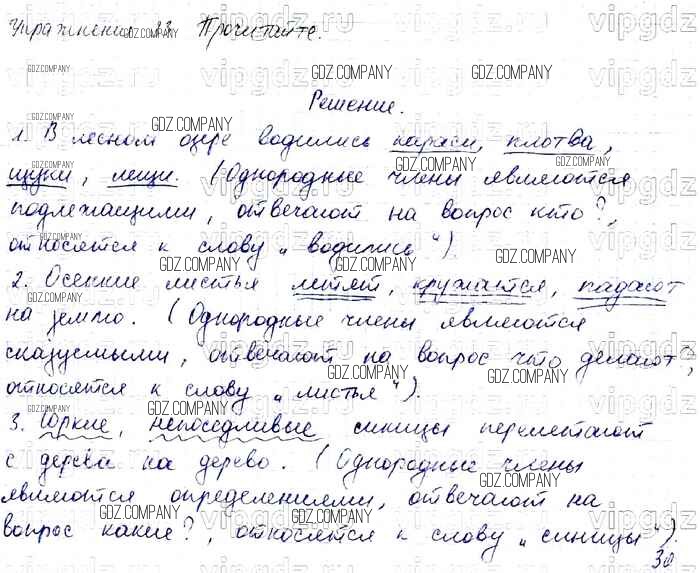 Упражнение 33 Прочитайте.
Решение.
1. В лесном озере водились караси, плотва,
щуки, лещи. (Однородные члены являются
подлежащими, отвечают на вопрос кто?,
относятся к слову „водились“).
2. Осенние листья летят, кружатся, падают
на землю. (Однородные члены являются
сказуемыми, отвечают на вопрос что делают?,
относятся к слову „листья“).
3. Юркие, непоседливые синицы перелетают
с дерева на дерево. (Однородные члены
являются определениями, отвечают на
вопрос какие?, относятся к слову „синицы“).
GDZ.COMPANY
vipgdz.ru